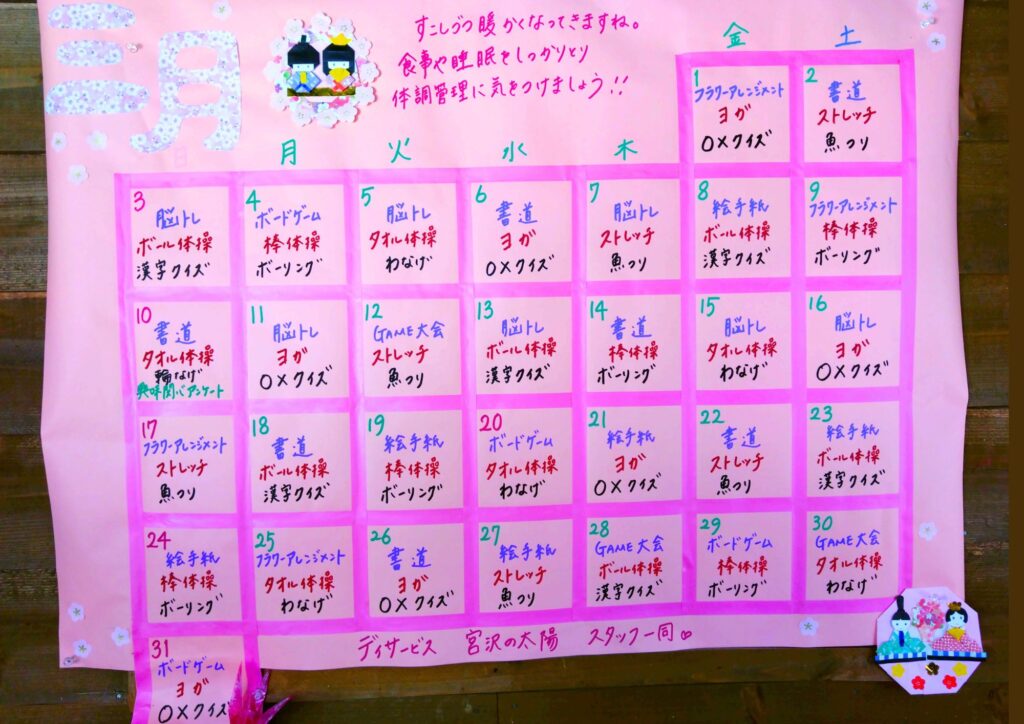 三月
すこしづつ暖かくなってきますね。
食事や睡眠をしっかりとり
体調管理に気をつけましょう!!
日 月 火 水 木 金 土
1
フラワーアレンジメント
ヨガ
O×クイズ
2
書道
ストレッチ
魚つり
3
脳トレ
ボール体操
漢字クイズ
4
ボードゲーム
棒体操
ボーリング
5
脳トレ
タオル体操
わなげ
6
書道
ヨガ
O×クイズ
7
脳トレ
ストレッチ
魚つり
8
絵手紙
ボール体操
漢字クイズ
9
フラワーアレンジメント
棒体操
ボーリング
10
書道
タオル体操
輪なげ
興味関心アンケート
11
脳トレ
ヨガ
O×クイズ
12
GAME大会
ストレッチ
魚つり
13
脳トレ
ボール体操
漢字クイズ
14
書道
棒体操
ボーリング
15
脳トレ
タオル体操
わなげ
16
脳トレ
ヨガ
O×クイズ
17
フラワーアレンジメント
ストレッチ
魚つり
18
書道
ボール体操
漢字クイズ
19
絵手紙
棒体操
ボーリング
20
ボードゲーム
タオル体操
わなげ
21
絵手紙
ヨガ
O×クイズ
22
書道
ストレッチ
魚つり
23
絵手紙
ボール体操
漢字クイズ
24
絵手紙
棒体操
ボーリング
25
フラワーアレンジメント
タオル体操
わなげ
26
書道
ヨガ
O×クイズ
27
絵手紙
ストレッチ
魚つり
28
GAME大会
ボール体操
漢字クイズ
29
ボードゲーム
棒体操
ボーリング
30
GAME大会
タオル体操
わなげ
31
ボードゲーム
ヨガ
O×クイズ
デイサービス 宮沢の太陽 スタッフ一同♡